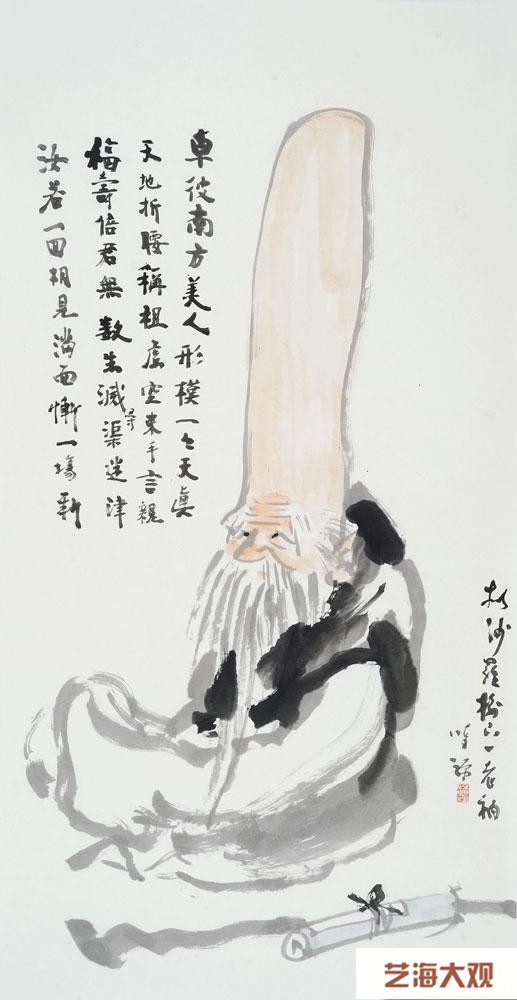 卓彼南方美人形模一々天眞
天地折腰稱祖虛空束手言親
福壽倍君無數生滅尋渠迷津
汝若一回相見滿面慚一場新
於沙羅樹下一老衲
艺海大观